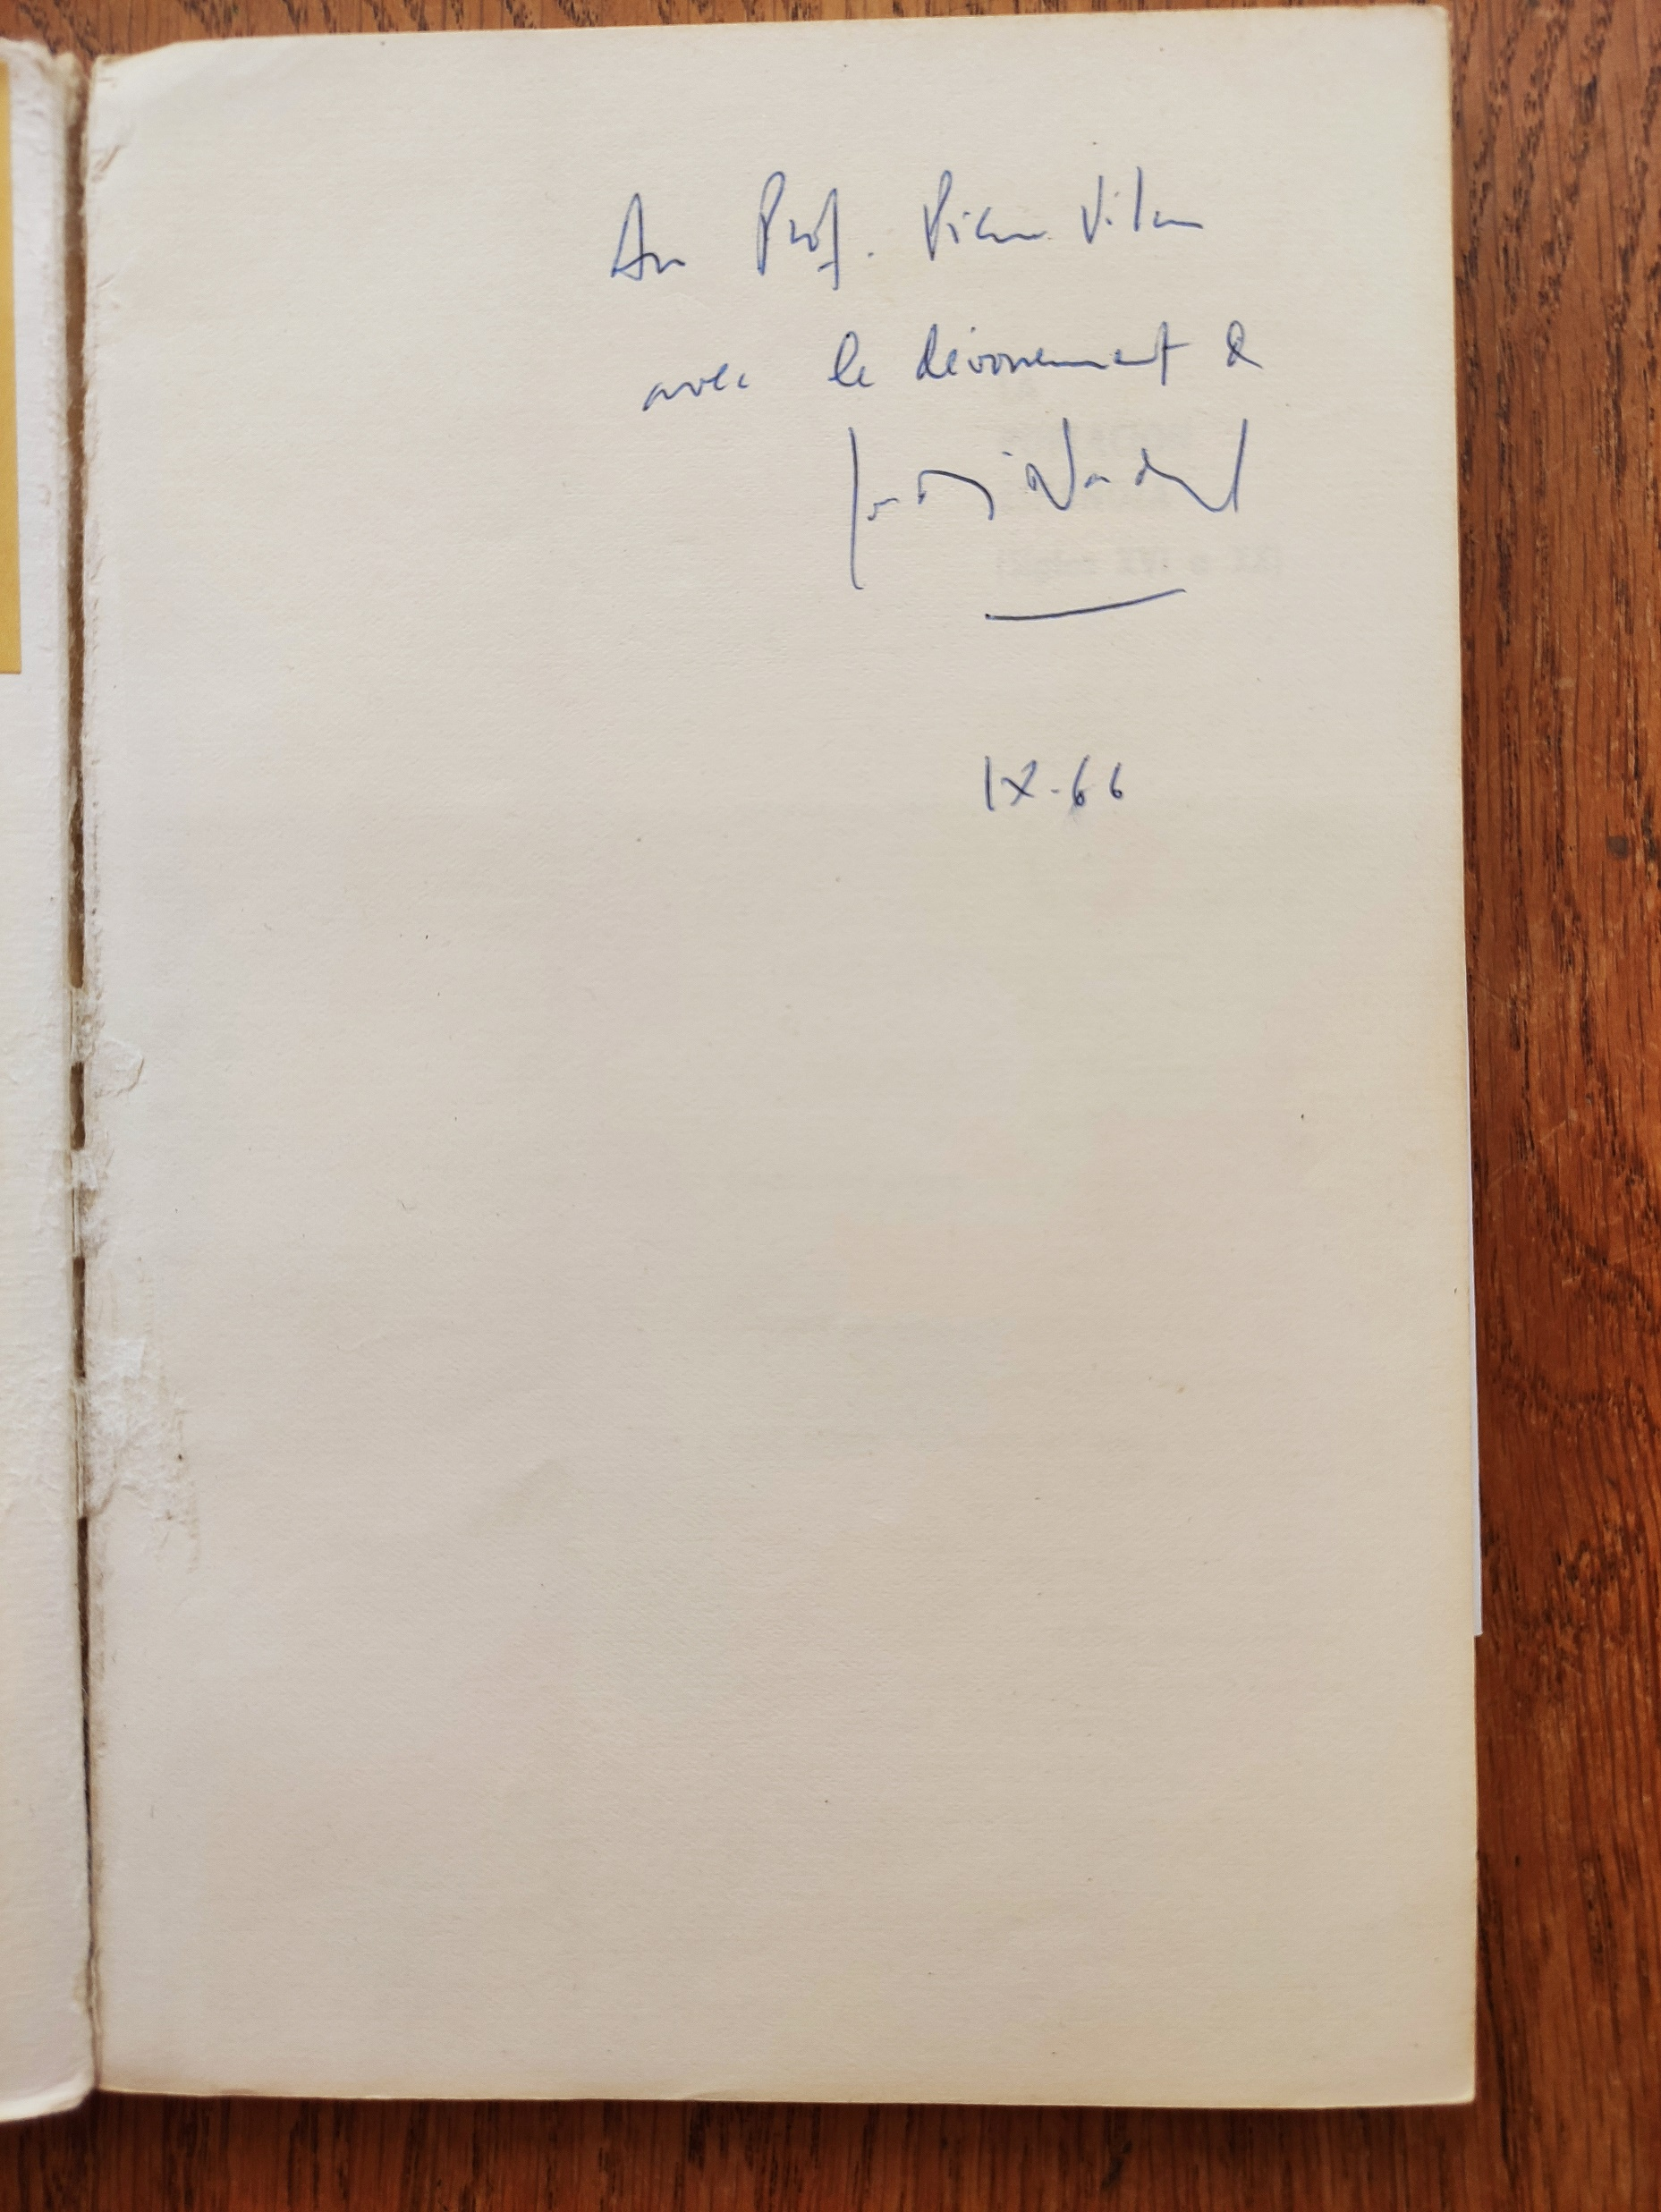 Au Prof. Pierre Vilar
avec le dévouement de
Jordi Nadal
IX-66